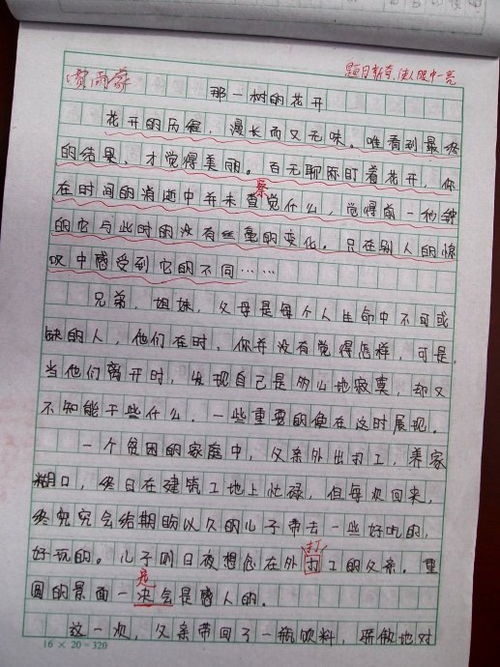 题目新奇，使人眼中一亮
贺雨蒙
那一树的花开
花开的历程，漫长而又无味。唯看到最终
的结果，才觉得美丽。百无聊际盯着花开，你
在时间的消逝中并未查觉什么，觉得前一秒钟
察
的它与此时的没有丝毫的变化。只在别人的惊
叹中感受到它的不同……
兄弟，姐妹，父母是每个人生命中不可或
缺的人，他们在时，你并没有觉得怎样，可是，
当他们离开时，发现自己是的么地寂寞，却又
不知能干些什么，一些重要的便在这时展现。
一个贫困的家庭中，父亲外出打工，养家
糊口，终日在建筑工地上忙碌，但每次回来，
终究会给期盼以久的儿子带去一些好吃的，
好玩的。儿子则日夜想念在外打工的父亲。重
打
圆的景面一决会是感人的。
定
这一次，父亲带回了一瓶饮料，骄傲地对
16 × 20 = 320